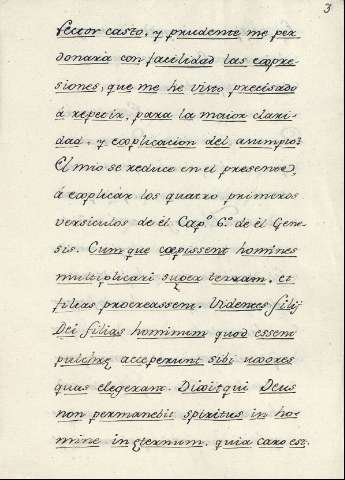 3
Lector casto, y prudente me per
donarà con facilidad las expre-
siones, que me he visto precisado
á repetir, para la maior clari-
dad, y explicacion del asumpto:
El mio se reduce en el presente,
á explicár los quatro primeros
versiculos de él Cap.º 6.º de él Gene-
sis. Cum que cœpissent homines
multiplicari super terram, et
filias procreassent. Videntes filij
Dei filias hominum quod essent
pulchrę acceperunt sibi uxores
quas elegerant. Dixitqui Deus
non permanebit spiritus in ho-
mine in ęternum, quia caro est.